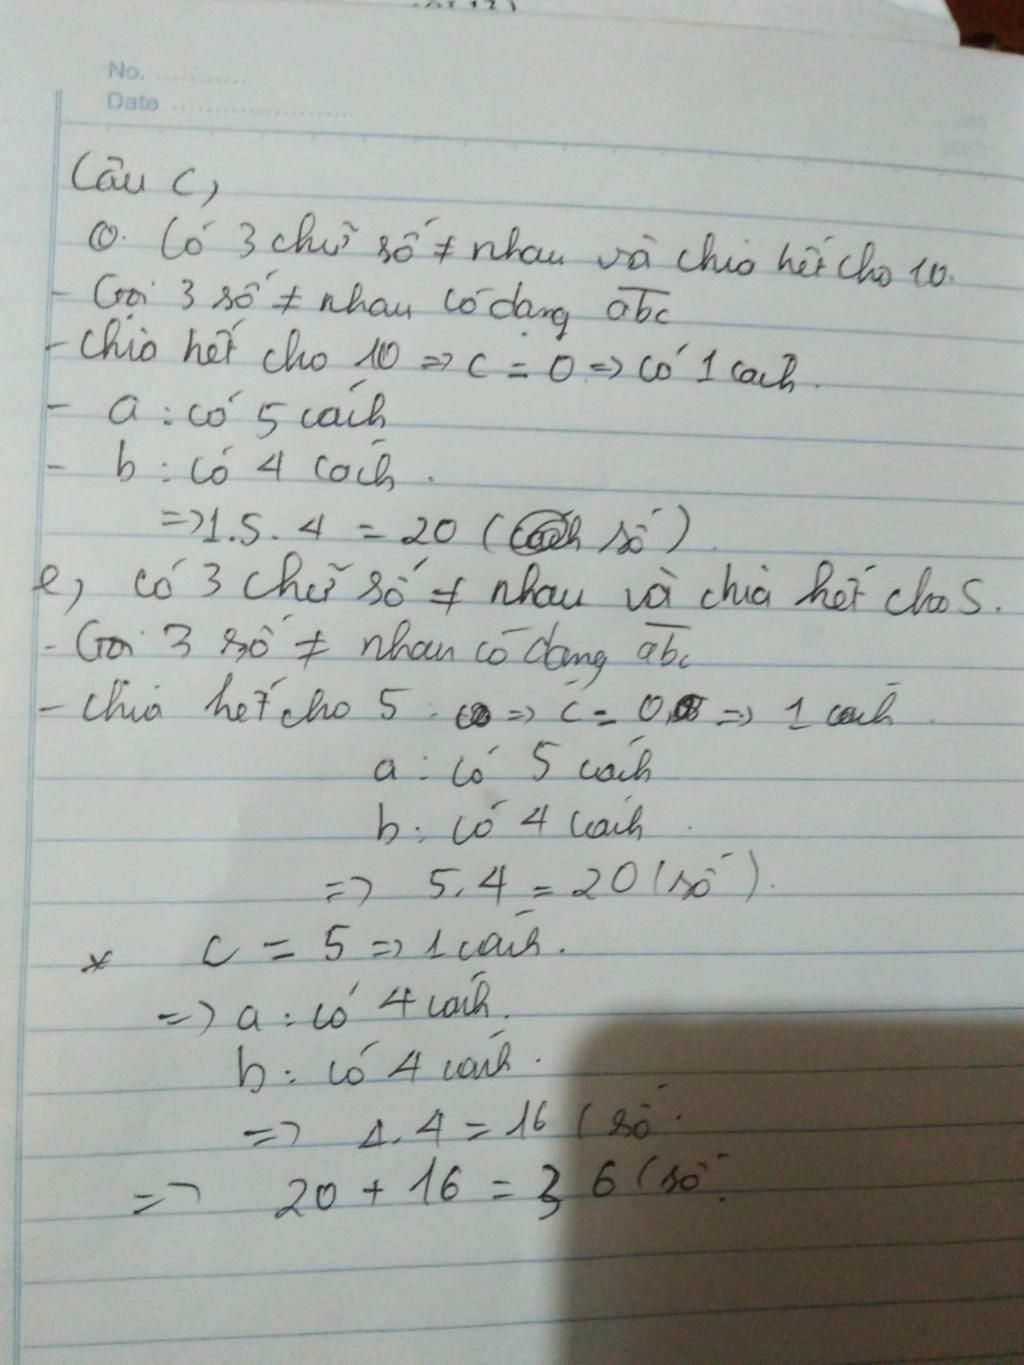 No. ............
Date ........................
Câu c,
Có 3 chữ số ≠ nhau và chia hết cho 10.
- Gọi 3 số ≠ nhau có dạng abc
- chia hết cho 10 => c = 0 => có 1 cách.
- a : có 5 cách
- b : có 4 cách.
=> 1.5.4 = 20 ( số ).
e, có 3 chữ số ≠ nhau và chia hết cho 5.
- Gọi 3 số ≠ nhau có dạng abc
- chia hết cho 5 => c = 0 => 1 cách.
a : có 5 cách
b : có 4 cách.
=> 5.4 = 20 (số).
* c = 5 => 1 cách.
=> a : có 4 cách.
b : có 4 cách.
=> 4.4 = 16 (số
=> 20 + 16 = 36 (số.